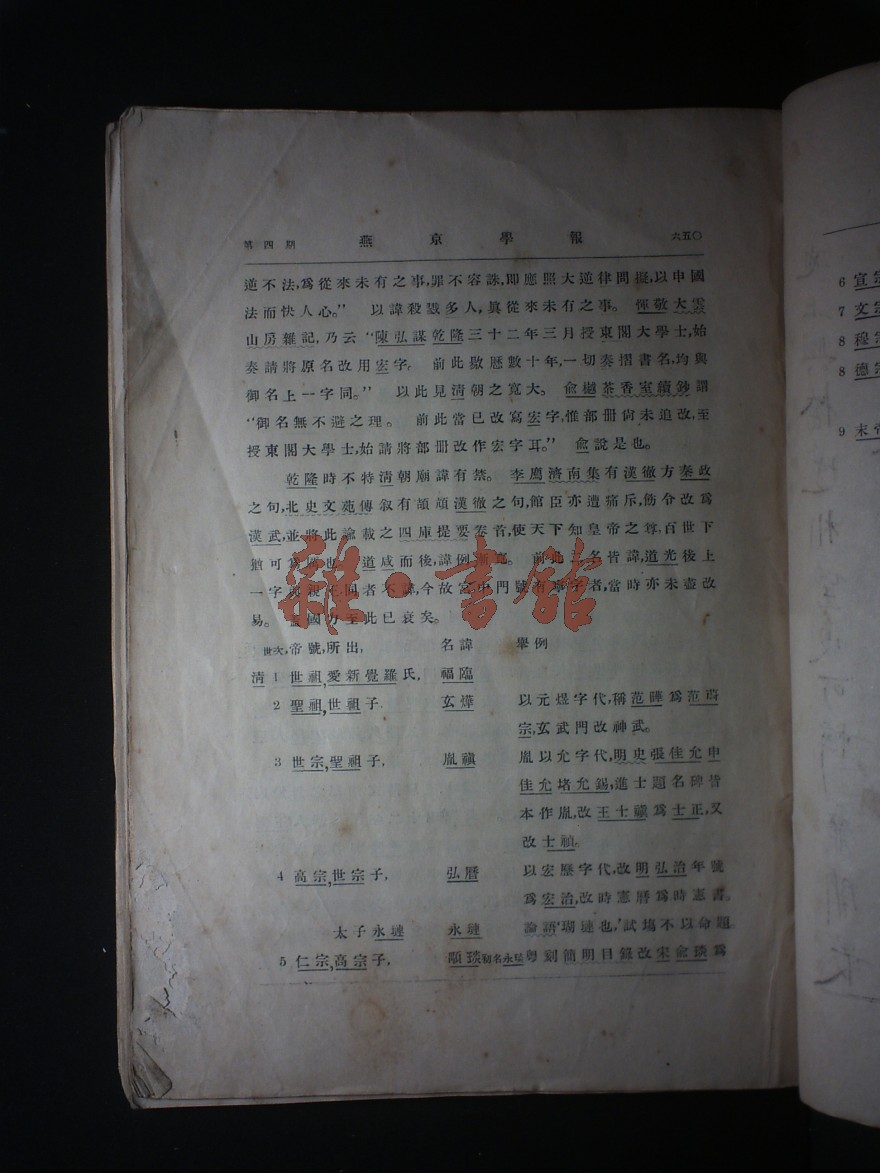 第四期 燕京學報 六五〇
逆不法,爲從來未有之事,罪不容誅,即應照大逆律問擬,以申國
法而快人心。” 以諱殺戮多人,眞從來未有之事。 惲敬大雲
山房雜記,乃云“陳弘謀乾隆三十二年三月授東閣大學士,始
奏請將原名改用宏字。 前此敭歷數十年,一切奏摺書名,均與
御名上一字同。” 以此見清朝之寬大。 俞樾茶香室續鈔謂
“御名無不避之理。 前此當已改寫宏字,惟部冊尙未追改,至
授東閣大學士,始請將部冊改作宏字耳。” 俞說是也。
乾隆時不特清朝廟諱有禁。 李廌濟南集有漢徹方秦政
之句,北史文苑傳敍有頡頏漢徹之句,館臣亦遭痛斥,飭令改爲
漢武,並將此諭載之四庫提要卷首,使天下知皇帝之尊,百世下
猶可爲厲也。 道咸而後,諱例漸寬。 前此二名皆諱,道光後上
一字與親王同者不諱,今故宮中門號有 字者,當時亦未盡改
易。 蓋國力至此已衰矣。
世次,帝號,所出, 名諱 舉例
清 1 世祖,愛新覺羅氏, 福臨
2 聖祖,世祖子. 玄燁 以元煜字代,稱范曄爲范蔚
宗,玄武門改神武。
3 世宗,聖祖子, 胤禛 胤以允字代,明史張佳允申
佳允堵允錫,進士題名碑皆
本作胤,改王士禛爲士正,又
改士禎。
4 高宗,世宗子, 弘曆 以宏歷字代,改明弘治年號
爲宏治,改時憲曆爲時憲書。
太子永璉 永璉 論語‘瑚璉也,’試塲不以命題
5 仁宗,高宗子, 顒琰初名永琰 粵刻簡明目錄改宋俞琰爲
6 宣宗
7 文宗
8 穆宗
8 德宗
9 末帝
雜·書館